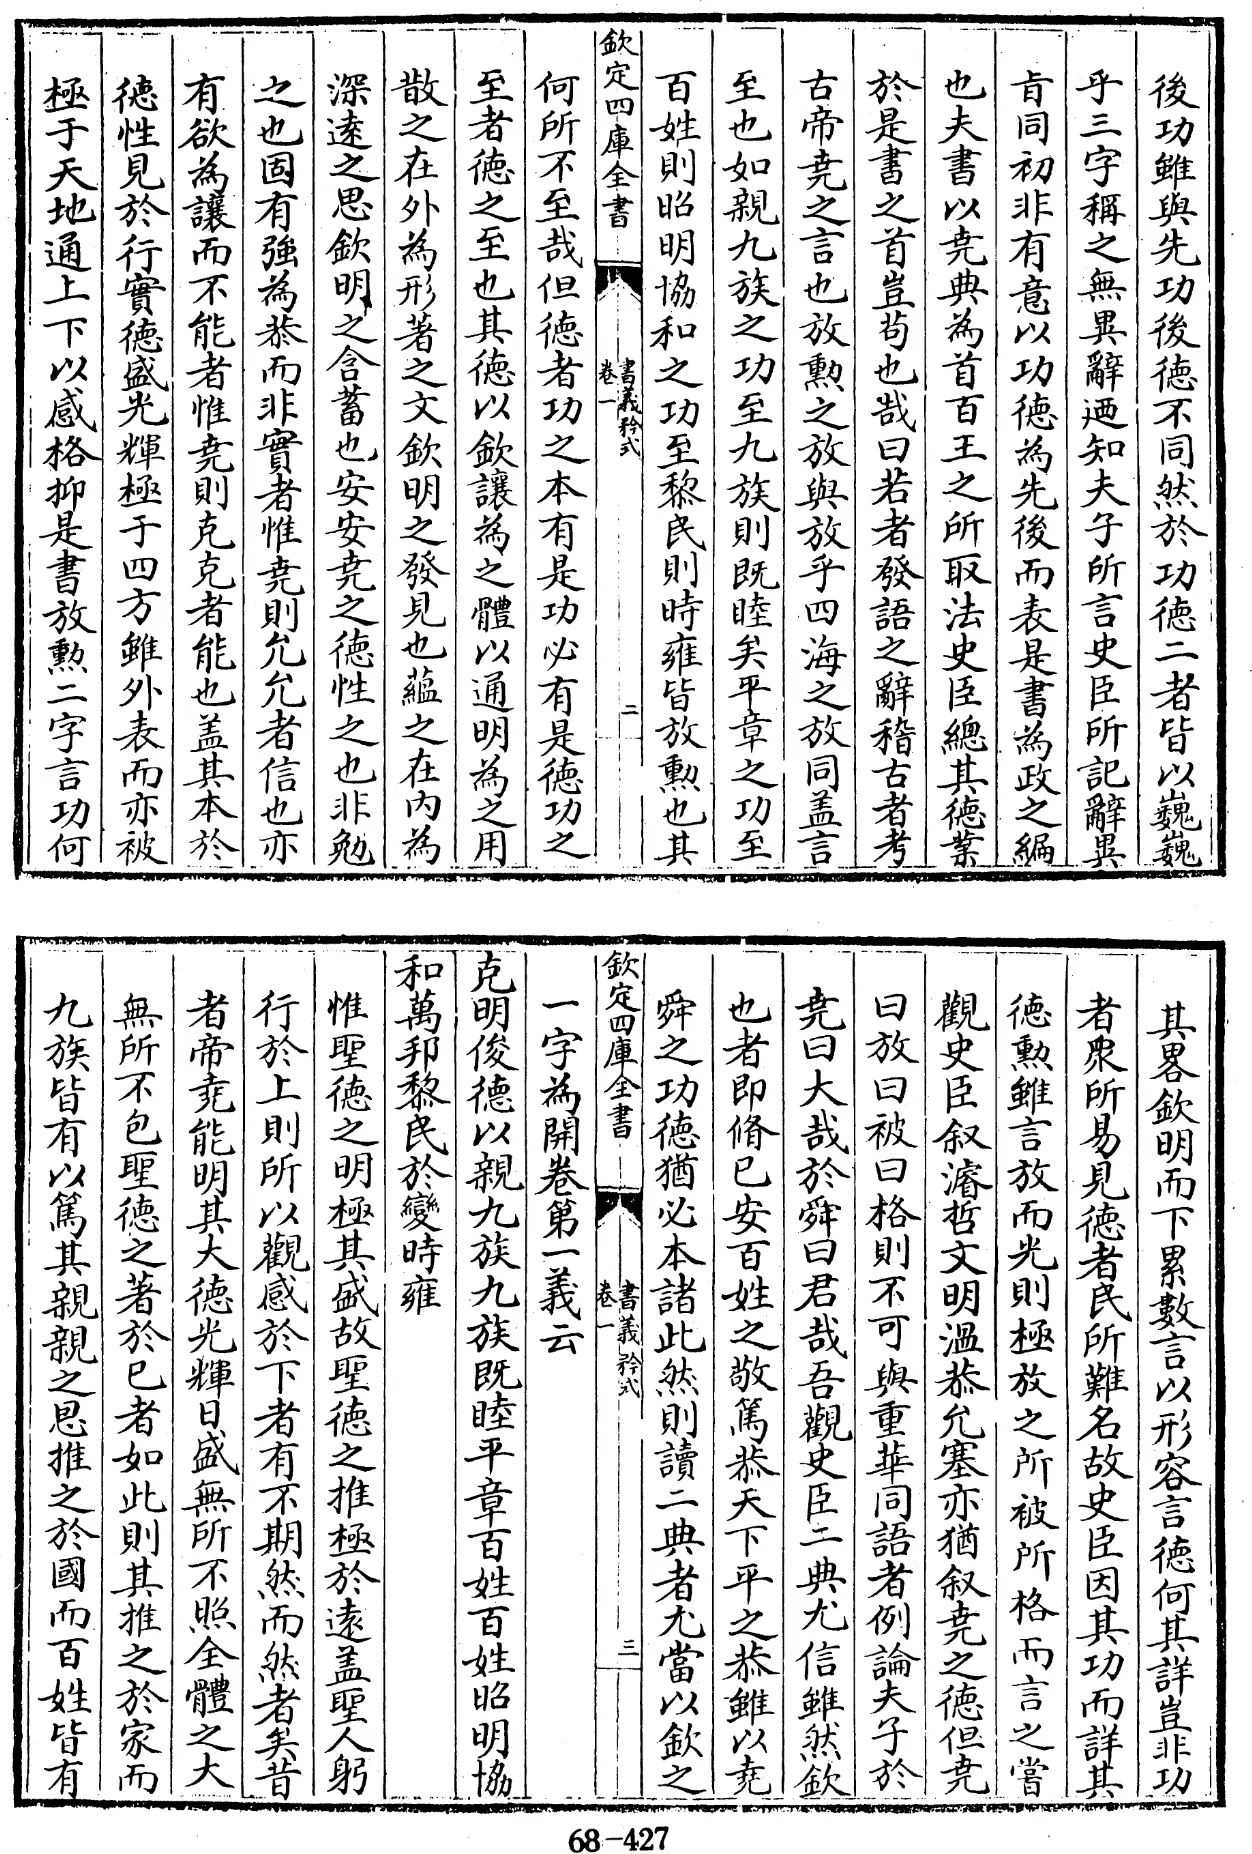 後功雖與先功後德不同然於功德二者皆以巍巍
乎三字稱之無異辭迺知夫子所言史臣所記辭異
㫖同初非有意以功德為先後而表是書為政之編
也夫書以堯典為首百王之所取法史臣總其德業
於是書之首豈苟也哉曰若者發語之辭稽古者考
古帝堯之言也放勲之放與放乎四海之放同盖言
至也如親九族之功至九族則既睦矣平章之功至
百姓則昭明協和之功至黎民則時雍皆放勲也其
欽定四庫全書
書義矜式
卷一
二
何所不至哉但德者功之本有是功必有是德功之
至者德之至也其德以欽讓為之體以通明為之用
散之在外為形著之文欽明之發見也蘊之在内為
深逺之思欽明之含蓄也安安堯之德性之也非勉
之也固有強為恭而非實者惟堯則允允者信也亦
有欲為讓而不能者惟堯則克克者能也盖其本於
德性見於行實德盛光輝極于四方雖外表而亦被
極于天地通上下以感格抑是書放勲二字言功何
其畧欽明而下累數言以形容言德何其詳豈非功
者衆所易見德者民所難名故史臣因其功而詳其
德勲雖言放而光則極放之所被所格而言之嘗
觀史臣叙濬哲文明温恭允塞亦猶叙堯之德但堯
曰放曰被曰格則不可與重華同語者例論夫子於
堯曰大哉於舜曰君哉吾觀史臣二典尤信雖然欽
也者即脩已安百姓之敬篤恭天下平之恭雖以堯
舜之功德猶必本諸此然則讀二典者尤當以欽之
欽定四庫全書
書義矜式
卷一
三
一字為開卷第一義云
克明俊德以親九族九族既睦平章百姓百姓昭明協
和萬邦黎民於變時雍
惟聖德之明極其盛故聖德之推極於逺盖聖人躬
行於上則所以觀感於下者有不期然而然者矣昔
者帝堯能明其大德光輝日盛無所不照全體之大
無所不包聖德之著於已者如此則其推之於家而
九族皆有以篤其親親之恩推之於國而百姓皆有
68-427